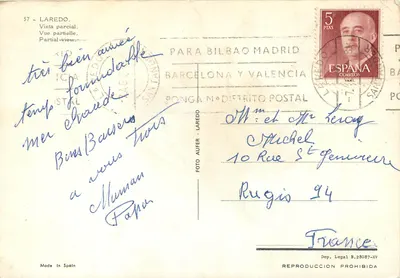 57 - LAREDO.
Vista parcial.
Vue partielle.
Partial view.
très bien arrivé
temps formidable
mer chaude.
Bons Baisers
a vous trois
Maman
Papa
Made in Spain
FOTO AUFER - LAREDO
PARA BILBAO MADRID
BARCELONA Y VALENCIA
PONGA Nº DISTRITO POSTAL
5
PTAS
ESPAÑA
CORREOS
Mme et Mr Leroy
Michel
10 Rue Ste Geneviève
Rugis 94
France
Dep. Legal B.
REPRODUCCION PROHIBIDA